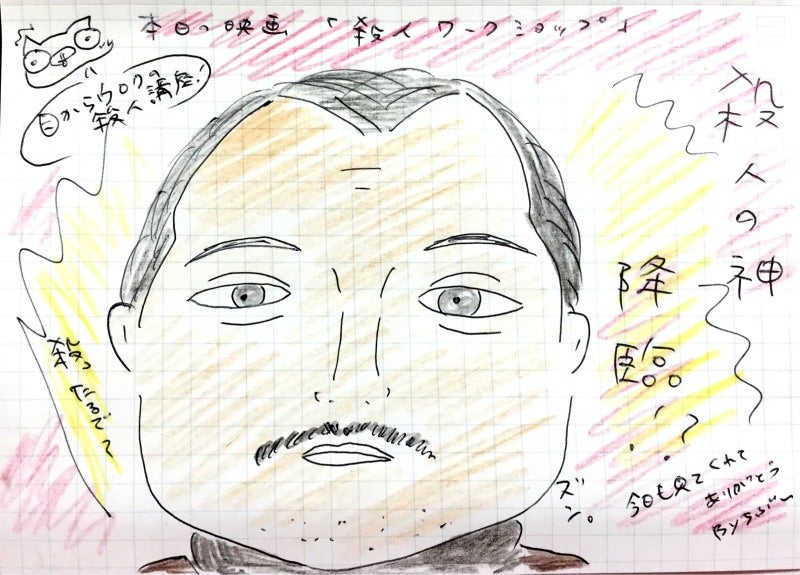 本日の映画 「殺人ワークショップ」
目からウロコの
殺人講座!
殺人の神
降臨!?
殺っ
ズン。
今日も見てくれて
ありがとう